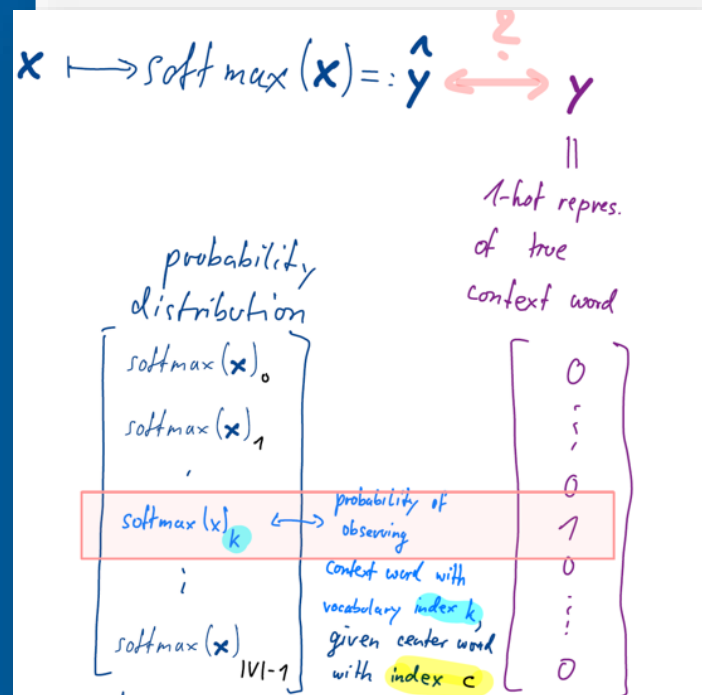 x ⟼ softmax(x) =: ŷ ⟷ y
?
||
1-hot repres.
of true
context word
probability
distribution
softmax(x)₀
softmax(x)₁
⋮
softmax(x)k ⟷ probability of
observing
context word with
vocabulary index k,
given center word
with index c
⋮
softmax(x)|V|-1
0
⋮
0
1
0
⋮
0